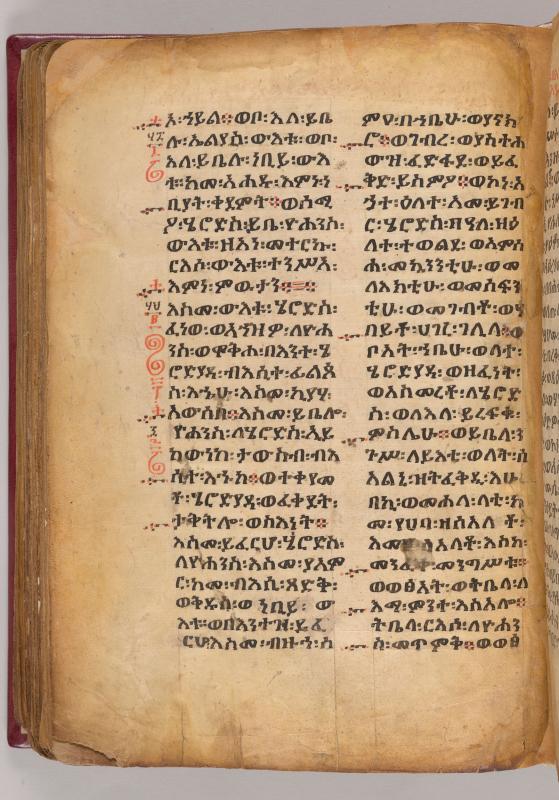 እ፡ኀይል፨ወቦ፡እለ፡ይቤ
ሉ፡ኤልያስ፡ውእቱ፡ወቦ፡
እለ፡ይቤሉ፡ነቢይ፡ውእ
ቱ፡ከመ፡አሐዱ፡እምነ፡ነ
ቢያት፡ቀደምት፨ወሰሚ
ዖ፡ሄሮድስ፡ይቤ፡ዮሐንስ፡
ውእቱ፡ዘአነ፡መተርኩ፡
ርእሶ፡ውእቱ፡ተንሥአ፡
እምነ፡ምውታን፨
እስመ፡ውእቱ፡ሄሮድስ፡
ፈነወ፡ወአኀዞ፡ለዮሐ
ንስ፡ወሞቅሖ፡በእንተ፡ሄ
ሮድያዳ፡ብእሲተ፡ፊልጶ
ስ፡እኁሁ፡እስመ፡ኪያሃ፡
አውሰበ፨እስመ፡ይቤሎ፡
ዮሐንስ፡ለሄሮድስ፡ኢይ
ከውነከ፡ታውስብ፡ብእ
ሲተ፡እኁከ፨ወተቀየመ
ቶ፡ሄሮድያዳ፡ወፈቀደት፡
ትቅትሎ፡ወስእነት፨
እስመ፡ይፈርሆ፡ሄሮድስ፡
ለዮሐንስ፡እስመ፡ያአም
ር፡ከመ፡ብእሲ፡ጻድቅ፡
ወቅዱስ፡ወነቢይ፡ው
እቱ፡ወበእንተዝ፡ይፈ
ርሆ፡እስመ፡ብዙኀ፡ስ
ምዓ፡በኀቤሁ፡ወያኀክ
ሮ፨ወገብረ፡ወያስተሐ
ውዝ፡ፈድፋደ፡ወይፈ
ቅድ፡ይስምዖ፨ወኮነ፡አ
ሐተ፡ዕለተ፡እመ፡ይገብ
ር፡ሄሮድስ፡በዓለ፡ዘዕ
ለተ፡ተወልደ፡ወአምስ
ሐ፡መኳንንቲሁ፡ወመ
ላእክቲሁ፡ወመሳፍን
ቲሁ፡ወመገብቶ፡ወዓ
በይቶ፡ሀገረ፡ገሊላ፨ወ
ቦአት፡ኀቤሁ፡ወለተ፡
ሄሮድያዳ፡ወዘፈነት፡
ወአስመረቶ፡ለሄሮድ
ስ፡ወለእለ፡ይረፍቁ፡
ምስሌሁ፨ወይቤላ፡ን
ጉሥ፡ለይእቲ፡ወለት፡ሰ
አልኒ፡ዘትፈቅዲ፡እሁ
በኪ፡ወመሐለ፡ላቲ፡ከ
መ፡የሀባ፡ዘሰአለ ቶ፡
እመ ሰአለቶ፡እስከ፡
መንፈቀ፡መንግሥቱ፨
ወወፅአት፡ወትቤላ፡ለ
እማ፡ምንተ፡እስአሎ፨
ትቤላ፡ርእሶ፡ለዮሐን
ስ፡መጥምቅ፨ወወፅ